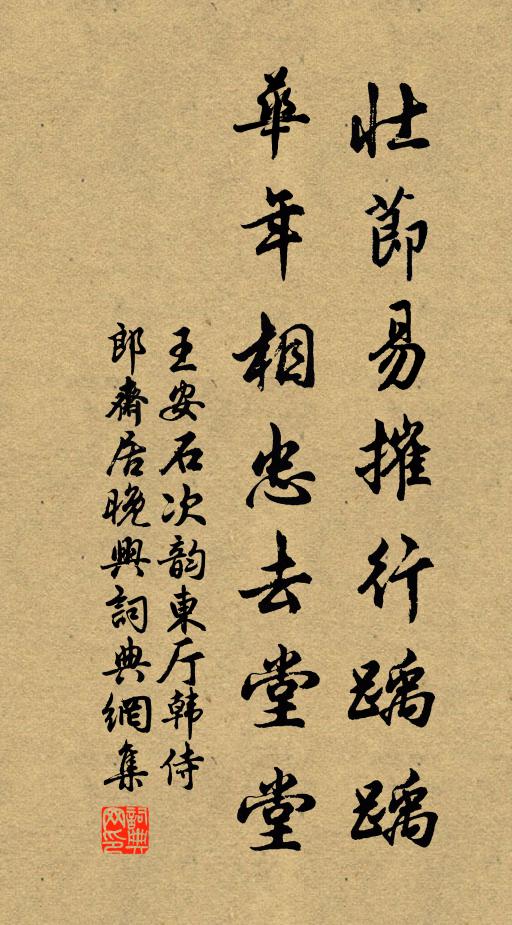 壮節易摧行踽踽
華年相忠去堂堂
王安石次韵東厅韩侍
郎齋居晚興詞典網集
詞典
网印